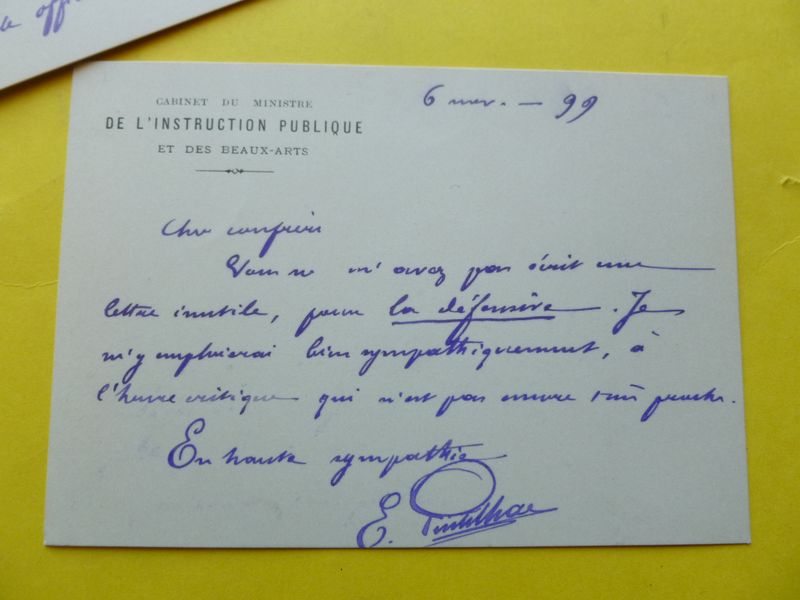 a offi
CABINET DU MINISTRE
DE L'INSTRUCTION PUBLIQUE
ET DES BEAUX-ARTS
6 nov. — 99
Cher confrère
Vous ne m'avez pas écrit une
lettre inutile, pour la défensive. Je
m'y emploierai bien sympathiquement, à
l'heure critique qui n'est pas encore très proche.
En haute sympathie
E.